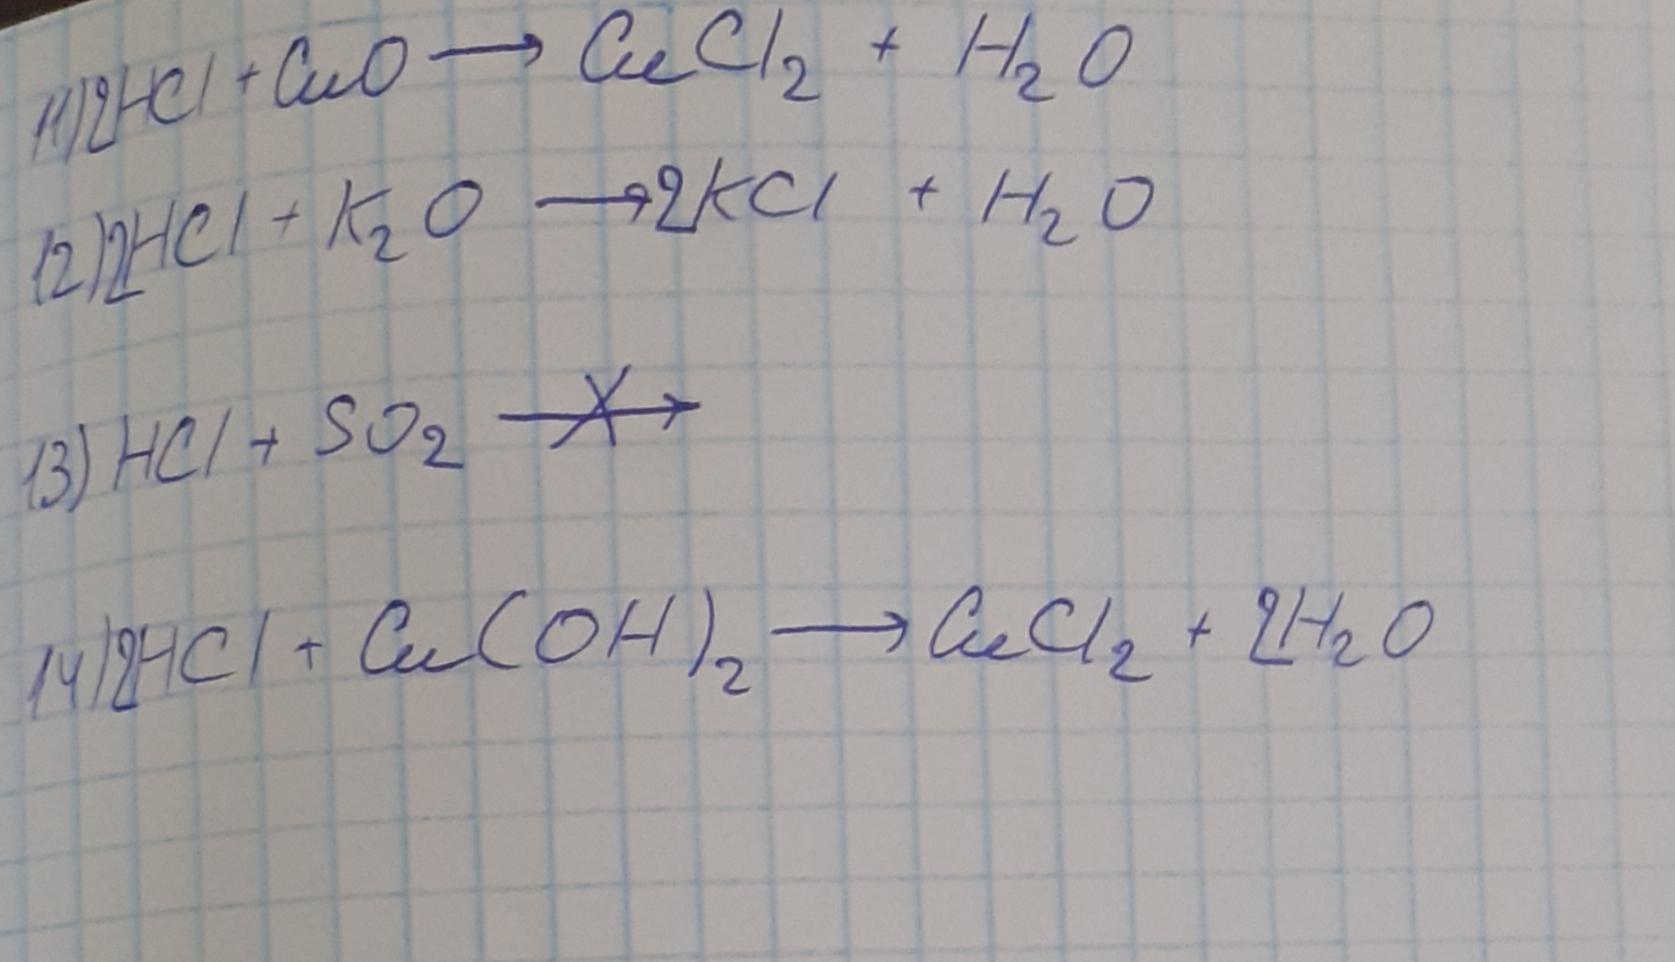 11) 2HCl + CuO → CuCl₂ + H₂O
12) 2HCl + K₂O → 2KCl + H₂O
13) HCl + SO₂ ↛
14) 2HCl + Cu(OH)₂ → CuCl₂ + 2H₂O